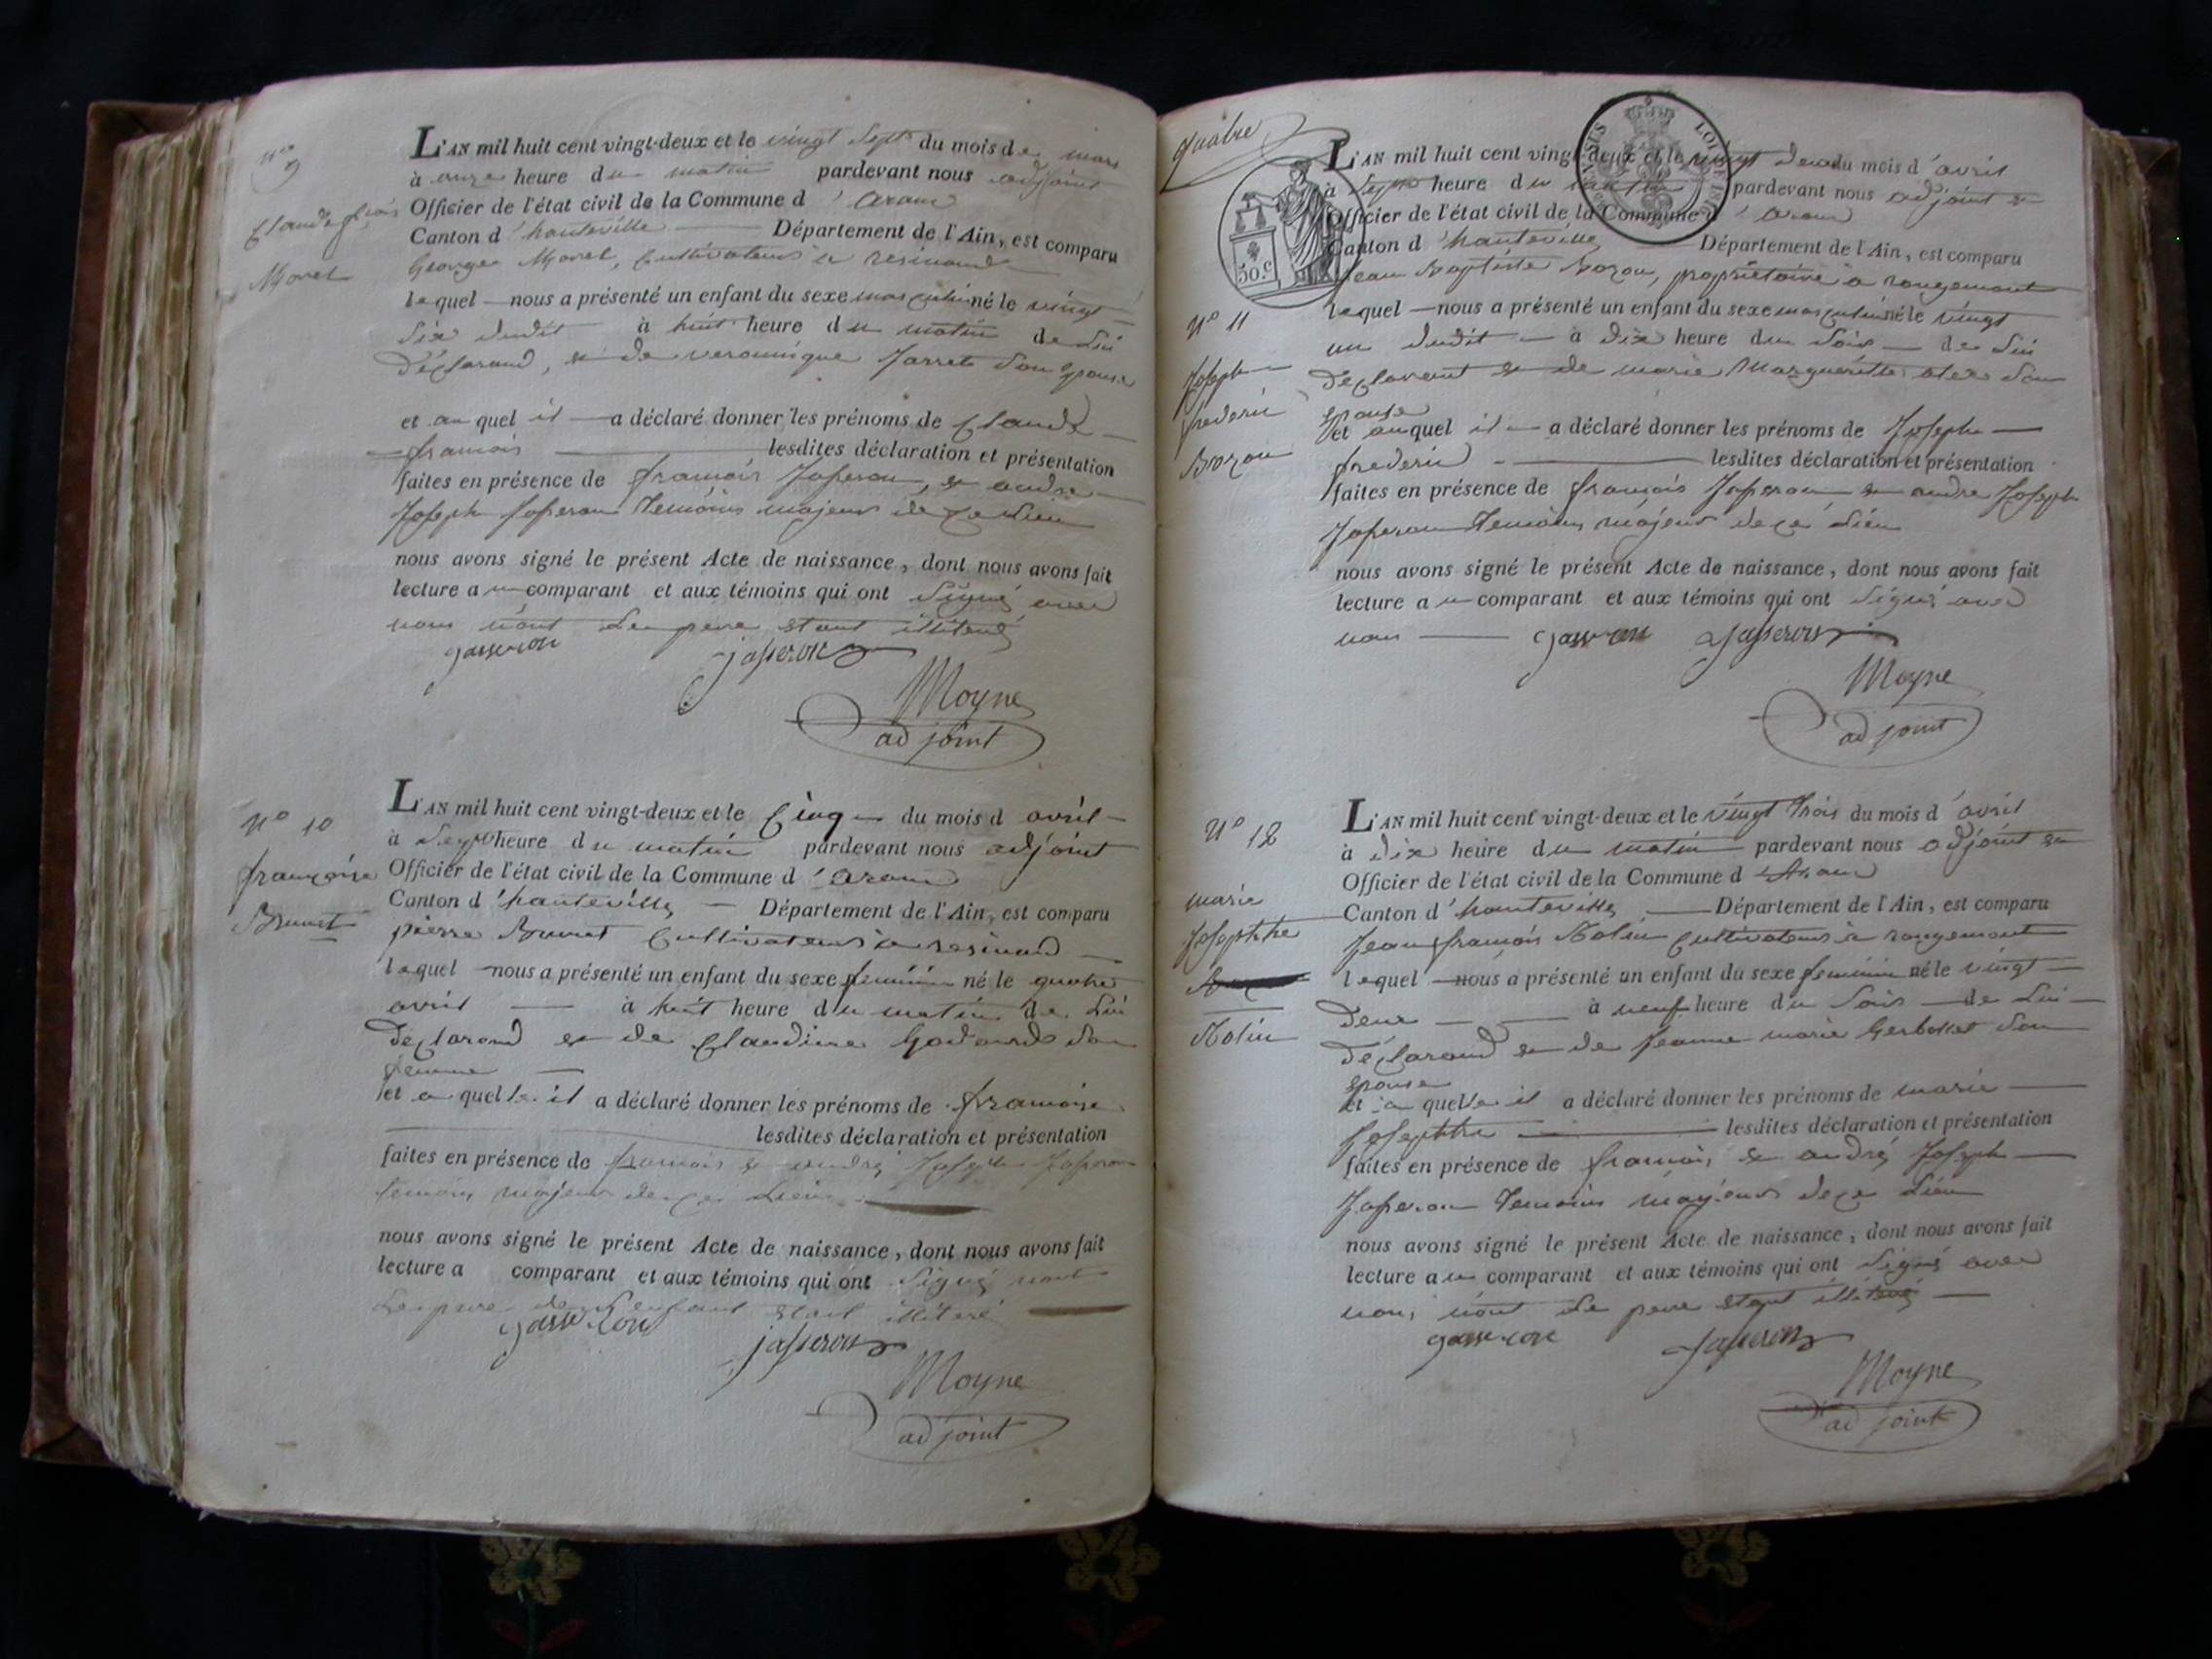 N° 9
Claude fçois
Morel
L'AN mil huit cent vingt-deux et le vingt Sept du mois de mars
à onze heure du matin pardevant nous adjoint
Officier de l'état civil de la Commune d'aranc
Canton d'hauteville Département de l'Ain, est comparu
George Morel, Cultivateur à resinand
lequel nous a présenté un enfant du sexe masculin né le vingt
Six dudit à huit heure du matin de Lui
Déclarand, et de veronique Jarret Son Epouse
et au quel il a déclaré donner les prénoms de Claude
françois lesdites déclaration et présentation
faites en présence de françois Josseron, et andré
Joseph Josseron temoins majeurs de ce Lieu
nous avons signé le présent Acte de naissance, dont nous avons fait
lecture au comparant et aux témoins qui ont Signé avec
nous nont Le pere etant illiteré
jasseron jasseron
Moyne
adjoint
N° 10
françoise
Brunet
L'AN mil huit cent vingt-deux et le Cinq du mois d avril
à Sept heure du matin pardevant nous adjoint
Officier de l'état civil de la Commune d'aranc
Canton d'hauteville Département de l'Ain, est comparu
pierre Brunet Cultivateur à resinand
lequel nous a présenté un enfant du sexe feminin né le quatre
avril à huit heure du matin de Lui
Déclarand et de Claudine Godard Son
femme
et a quelle il a déclaré donner les prénoms de françoise
lesdites déclaration et présentation
faites en présence de françois et andré Joseph Josseron
temoins majeurs de ce Lieu
nous avons signé le présent Acte de naissance, dont nous avons fait
lecture a comparant et aux témoins qui ont Signé nont
Le pere de L'enfant etant illiteré
jasseron jasseron
Moyne
adjoint
quatre
50.c
N° 11
Joseph
frederic
Bozon
L'AN mil huit cent vingt-deux et le vingt deux du mois d'avril
à Sept heure du matin pardevant nous adjoint et
Officier de l'état civil de la Commune d'aranc
Canton d'hauteville Département de l'Ain, est comparu
Jean Baptiste Bozon, propriétaire à rougemont
lequel nous a présenté un enfant du sexe masculin né le vingt
un dudit à dix heure du Soir de Lui
Declarant et de marie Margueritte Son
epouse
et au quel il a déclaré donner les prénoms de Joseph
frederic lesdites déclaration et présentation
faites en présence de françois Josseron et andre Joseph
Josseron temoins majeurs de ce Lieu
nous avons signé le présent Acte de naissance, dont nous avons fait
lecture au comparant et aux témoins qui ont Signé avec
nous jasseron jasseron
Moyne
adjoint
N° 12
marie
Josephthe
Kolin
L'AN mil huit cent vingt-deux et le vingt trois du mois d'avril
à dix heure du matin pardevant nous adjoint et
Officier de l'état civil de la Commune d Aranc
Canton d'hauteville Département de l'Ain, est comparu
Jean françois Kolin Cultivateur à rougemont
lequel nous a présenté un enfant du sexe feminin né le vingt
deux à neuf heure du Soir de Lui
Déclarand et de Jeanne marie Gerbollet Son
epouse
et a quelle il a déclaré donner les prénoms de marie
Josephthe lesdites déclaration et présentation
faites en présence de françois et andré Joseph
Josseron temoins majeurs de ce Lieu
nous avons signé le présent Acte de naissance, dont nous avons fait
lecture au comparant et aux témoins qui ont Signé avec
nous, nont Le pere etant illiteré
jasseron jasseron
Moyne
adjoint